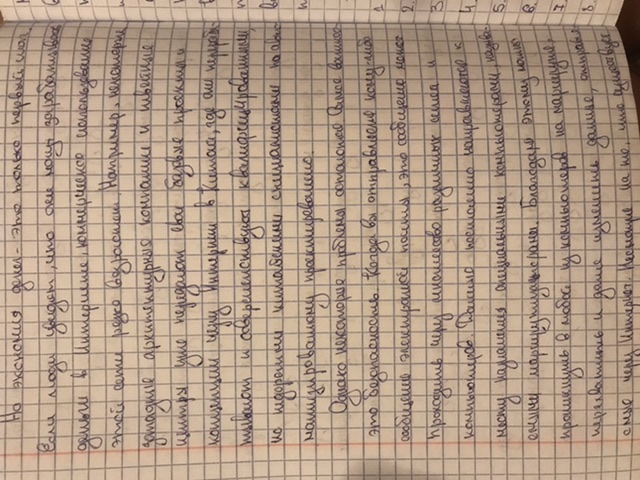 Но экономия денег - это только первый шаг.
Если люди увидят, что они могут зарабатывать
деньги в Интернете, коммерческое использование
этой сети резко возрастёт. Например, некоторые
западные архитектурные компании и швейные
центры уже передают свои базовые проекты и
концепции через Интернет в Китай, где они
и совершенствуются квалифицированными,
но недорогими китайскими специалистами по
компьютерному проектированию.
Однако некоторые проблемы остаются. Самое важное -
это безопасность. Когда вы отправляете кому-либо
сообщение электронной почты, это сообщение может
проходить через множество различных сетей и
компьютеров. Данные постоянно направляются к
месту назначения специальными компьютерами
маршрутизаторами. Благодаря этому можно
проникнуть в любой из компьютеров на маршруте,
перехватить и даже изменить данные,
через Интернет. Несмотря на то, что
1
2.
3
4.
5.
6.
7.
8